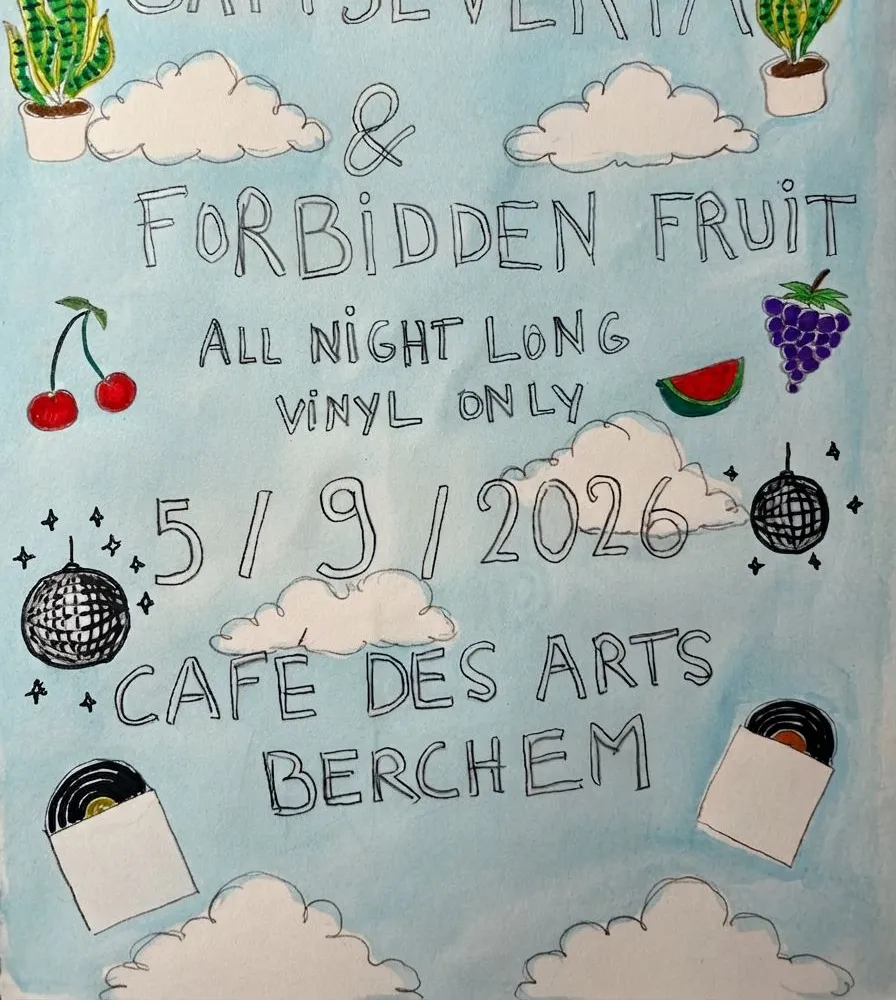 &
FORBIDDEN FRUIT
ALL NIGHT LONG
VINYL ONLY
5/9/2026
CAFÉ DES ARTS
BERCHEM